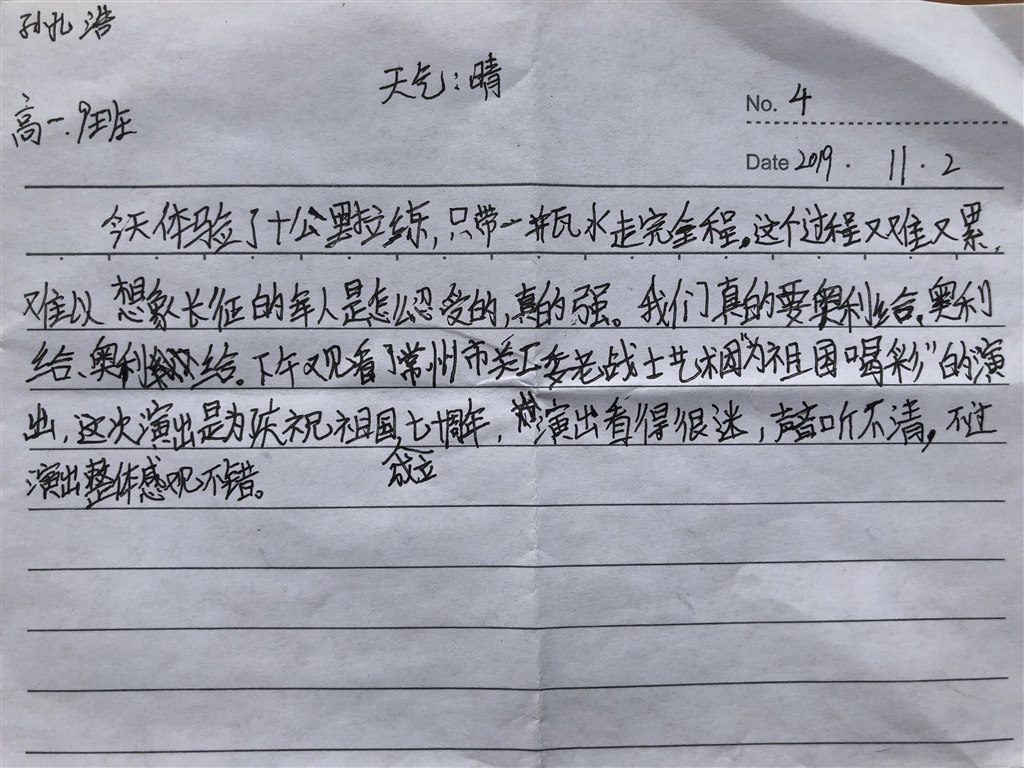 孙 浩
天气：晴
高一.9班
No. 4
Date 2019. 11. 2
今天体验了十公里拉练，只带一瓶水走完全程。这个过程又难又累，
难以想象长征的军人是怎么忍受的，真的强。我们真的要奥利给、奥利
给、奥利给。下午又观看了常州市关工委老战士艺术团“为祖国喝彩”的演
出，这次演出是为庆祝祖国成立七十周年，演出看得很迷，声音听不清，不过
演出整体感观不错。